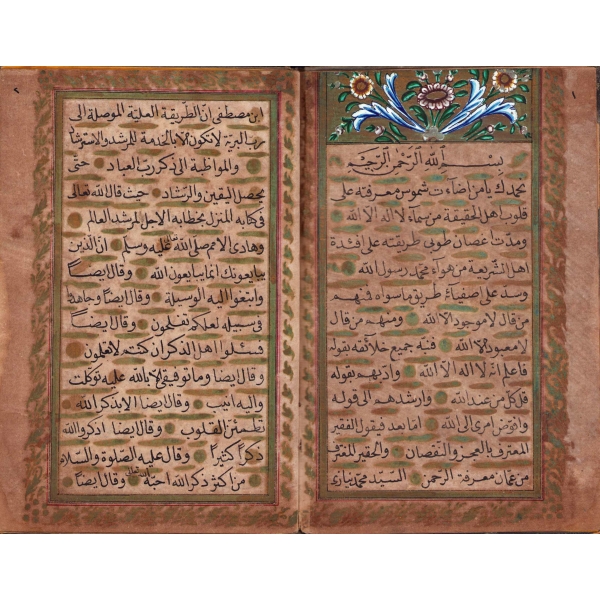 بسم الله الرحمن الرحيم
نحمدك يا من اضآءت شموس معرفته على
قلوب اهل الحقيقة من سماء لا اله الا الله
ومدت اغصان طوبى طريقته على افئدة
اهل الشريعة من هوآء محمد رسول الله
وسد على اصفيائه طريق ما سواه فمنهم
من قال لا موجود الا الله ومنهم من قال
لا معبود الا الله فنبه جميع خلائقه بقوله
فاعلم انه لا اله الا الله وادبهم بقوله
قل كل من عند الله وارشدهم الى قوله
وافوض امرى الى الله اما بعد فيقول الفقير
المعترف بالعجز والنقصان والحقير المغترف
من عمان معرفة الرحمن السيد محمد نيازى
ابن مصطفى ان الطريقة العلية الموصلة الى
رب البرية لا تكون الا بالخدمة للمرشد والاسترشاد
والمواظبة الى ذكر رب العباد حتى
يحصل اليقين والرشاد حيث قال الله تعالى
فى كتابه المنزل بخطابه الاجل لمرشد العالم
وهادى الامم صلى الله عليه وسلم ان الذين
يبايعونك انما يبايعون الله وقال ايضاً
وابتغوا اليه الوسيلة وقال ايضاً وجاهدوا
فى سبيله لعلكم تفلحون وقال ايضاً
فسئلوا اهل الذكر ان كنتم لا تعلمون
وقال ايضا وما توفيقى الا بالله عليه توكلت
واليه انيب وقال ايضا الا بذكر الله
تطمئن القلوب وقال ايضا اذكروا الله
ذكراً كثيراً وقال عليه الصلوة والسلام
من اكثر ذكر الله احبه الله تعالى وقال ايضاً